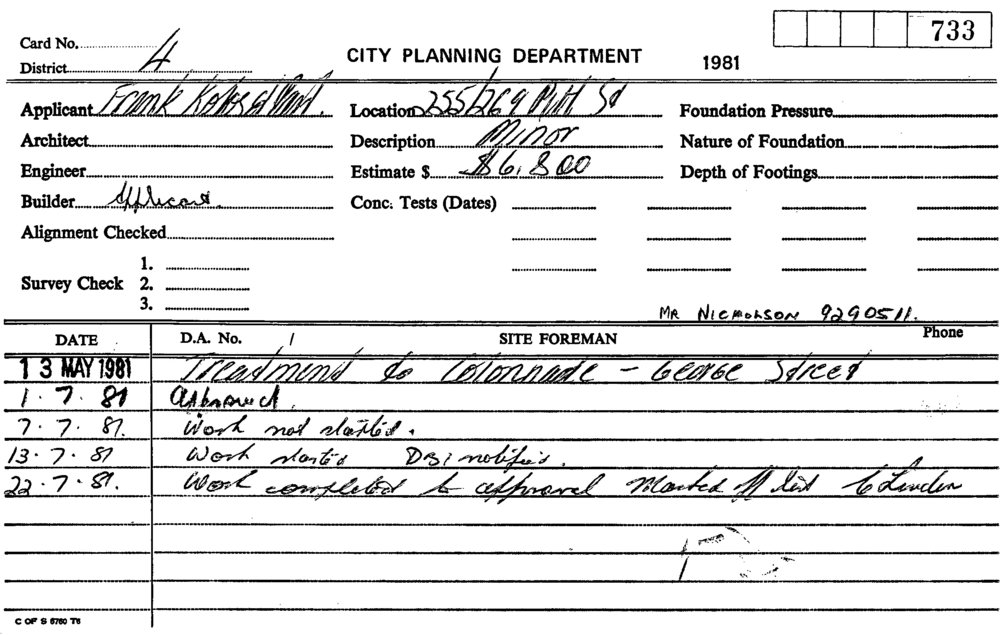 733
Card No.
District 4
CITY PLANNING DEPARTMENT 1981
Applicant Frank Location 255/269 Pitt St Foundation Pressure
Architect Description Minor Nature of Foundation
Engineer Estimate $ $6,800 Depth of Footings
Builder Applicant. Conc. Tests (Dates)
Alignment Checked
1.
Survey Check 2.
3.
MR NICHOLSON 9290511.
DATE D.A. No. / SITE FOREMAN Phone
13 MAY 1981 Treatment to Colonnade - George Street
1.7.81 Approved.
7.7.81. Work not started.
13.7.81 Work started DBI notified.
22.7.81. Work completed to approval Marked off list
C OF S 6760 T6